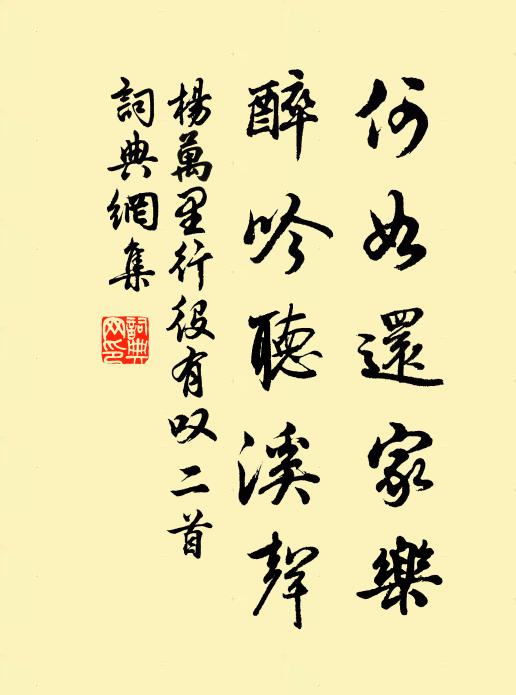 何如還家樂
醉吟聽溪聲
楊萬里行役有叹二首
詞典網集
詞典網印